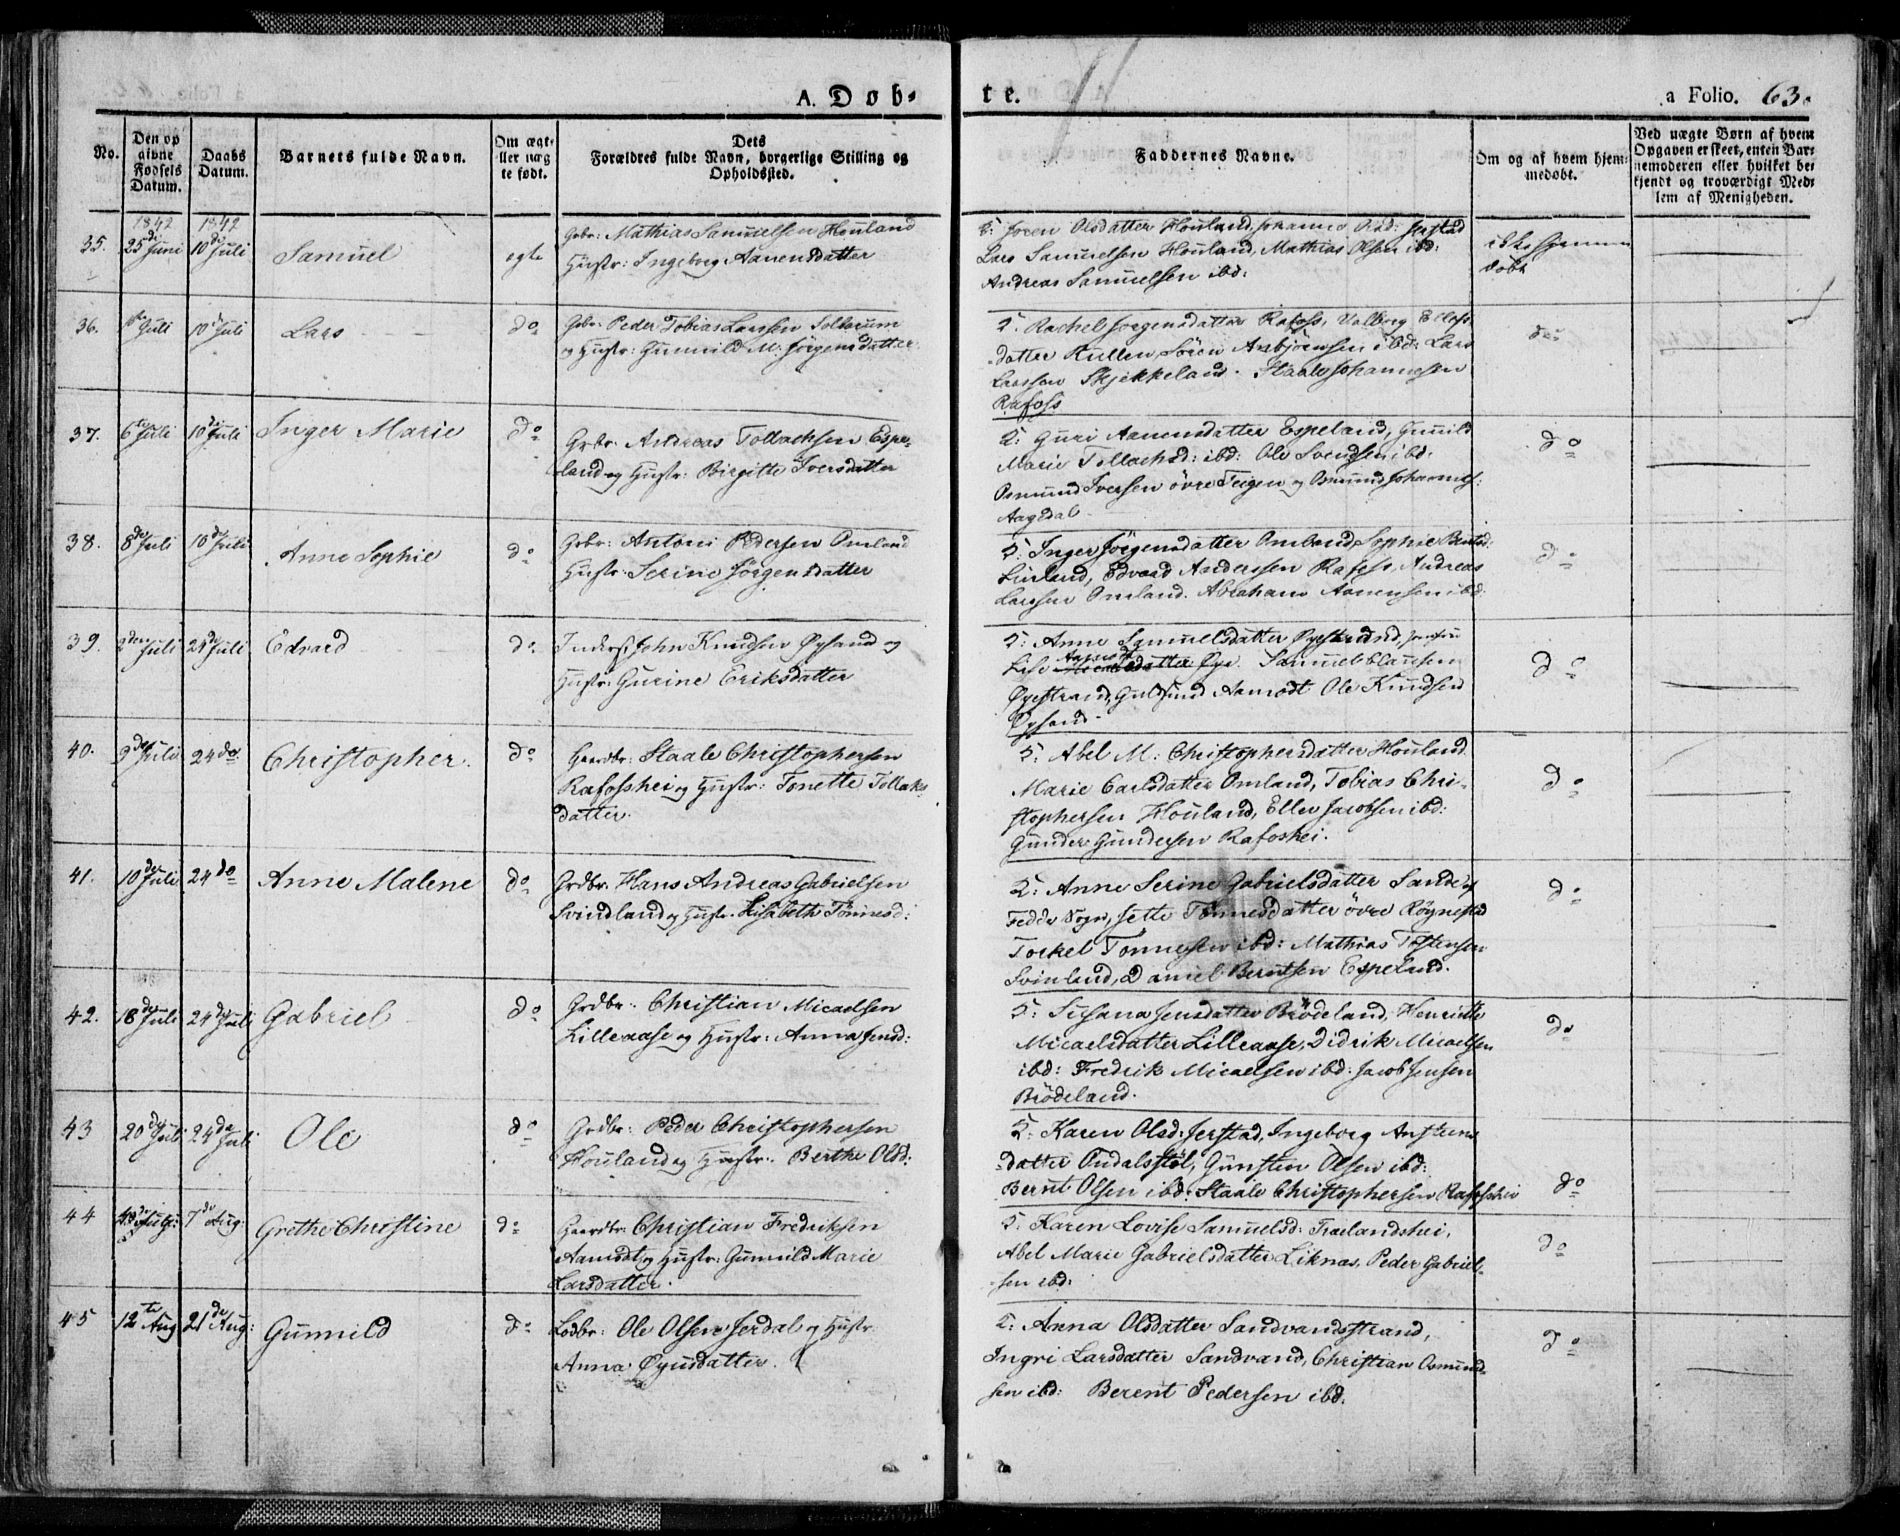 A. Døb-
te.
a Folio. 63.
No.
Den op
givne
Fødsels
Datum.
Daabs
Datum.
Barnets fulde Navn.
Om ægte
eller uæg
te født.
Dets
Forældres fulde Navn, borgerlige Stilling og
Opholdssted.
Faddernes Navne.
Om og af hvem hjem-
medøbt.
Ved uægte Børn af hvem
Opgaven er skeet, enten Bar-
nemoderen eller hvilket be-
kjendt og troværdigt Med-
lem af Menigheden.
1842 1842
35. 25de Juni 10de Juli Samuel egte
Grbr: Mathias Samuelsen Houland
Hustr: Ingeborg Aanensdatter
Olsdatter Houland, Johanne Olsd: Jerstad
Lars Samuelsen Houland, Mathias Olsen ibd:
Andreas Samuelsen ibd:
ikke hjemme
døbt
36. 1ste Juli 10de Juli Lars do
Grbr: Peder Tobias Larsen
og Hustr: Gunnild M: Jørgensdatter
5: Rachel Jørgensdatter Rafoss, Valborg
datter Kullen, Sören Asbjörnsen ibd: Lars
Larssen Skjekkeland. Staale Johannesen
Rafoss
do
37. 6te Juli 10de Juli Inger Marie do
Grbr: Andreas Tollachsen Espe-
land og Hustr: Birgitte Iversdatter
5: Guri Aanensdatter Espeland, Gunild
Marie Tollachsd: ibd: Ole Svendsen ibd.
Osmund Iversen övre Feigen og Osmund Johannes:
Aagedal
do
38. 8de Juli 10de Juli Anne Sophie do
Grbr: Antoni Pedersen Omland
Hustr: Serine Jörgensdatter
5: Inger Jörgensdatter Omland, Sophie Berntsd:
Edvard Anderssen Rafoss, Andreas
Larssen Omland. Abraham Aanensen ibd:
do
39. 2den Juli 24de Juli Edvard do
Inderst John Knudsen Øysand og
Hustr: Gurine Eriksdatter
5: Anne Samuelsdatter Øyestrand,
Lise datter Øye. Samuel Clausen
Øyestrand, Aamodt Ole Knudsen
Øysand
do
40. 9de Juli 24de Christopher. do
Gaardbr: Staale Christophersen
Rafosshei og Hustr: Tonette Tollaks
datter.
5: Abel M: Christophersdatter Houland
Marie Carlsdatter Omland, Tobias Chri-
stophersen Houland, Eller Jacobsen ibd:
Gunder Gundersen Rafoshei.
do
41. 10de Juli 24do Anne Malene do
Grdbr. Hans Andreas Gabrielsen
Svindland og Hustr. Lisabeth Tönnesd:
5: Anne Serine Gabrielsdatter Sande af
Fedde Sogn, Jette Tönnesdatter övre Röynestad
Torkel Tönnessen ibd: Mathias Tostensen
Svinland, Daniel Berntsen Espeland.
do
42. 18de Juli 24de Juli Gabriel do
Grdbr. Christian Micaelsen
Lilleaase og Hustr: Anna Jensd:
5: Susana Jensdatter Brödeland, Henriette
Micaelsdatter Lilleaase, Didrik Micaelsen
ibd: Fredrik Micaelsen ibd: Jacob Jensen
Brödeland.
do
43 20de Juli 24de Juli Ole do
Grdbr: Peder Christophersen
Houland og Hustr: Berthe Olsd:
5: Karen Olsd: Jerstad, Ingeborg Anstens
datter Ondalsstöl, Gunsten Olsen ibd:
Bernt Olsen ibd: Staale Christophersen Rafosshei
do
44 Aug: 7de Aug: Grethe Christine do
Gaardbr: Christian Fredriksen
Aamodt og Hustr: Gunnild Marie
Larsdatter.
5: Karen Lovise Samuelsd: Traelandshei,
Abel Marie Gabrielsdatter Liknas, Peder Gabriel-
sen ibd:
do
45 12te Aug 21de Aug: Gunnild do
Lodbr: Ole Olsen Jerdal og Hustr.
Anna Øyusdatter.
5: Anna Olsdatter Sandvandsstrand,
Ingri Larsdatter Sandvand, Christian Osmund-
sen ibd: Berent Pedersen ibd.
do